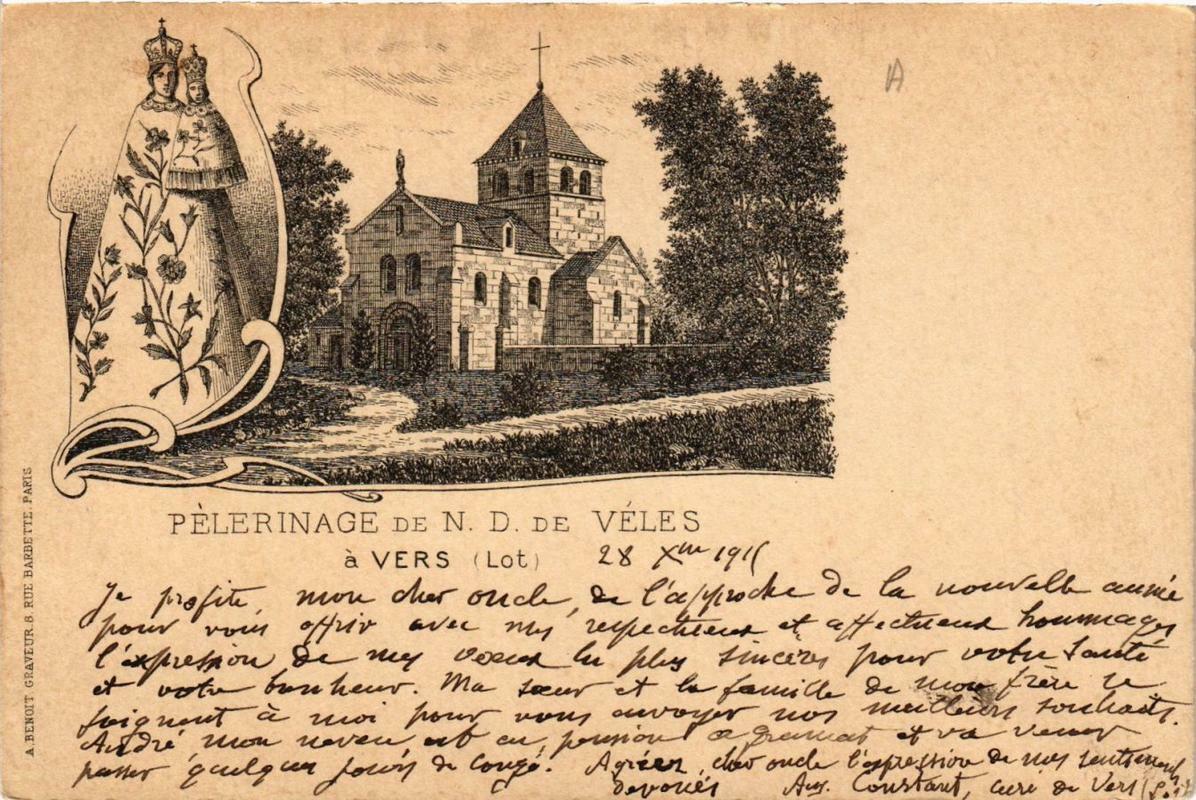 A
PÈLERINAGE DE N. D. DE VÉLES
à VERS (Lot)
28 Xbre 1915
Je profite, mon cher oncle, de l'approche de la nouvelle année
pour vous offrir avec mes respectueux et affectueux hommages
l'expression de mes voeux les plus sincères pour votre santé
et votre bonheur. Ma soeur et la famille de mon frère se
joignent à moi pour vous envoyer nos meilleurs souhaits.
André mon neveu est en pension à gramat et va venir
passer quelques jours de congé. Agréez, cher oncle l'expression de nos sentiments
dévoués Aug. Constant, curé de Vers (Lot)
A. BENOIT. GRAVEUR. 8. RUE BARBETTE. PARIS